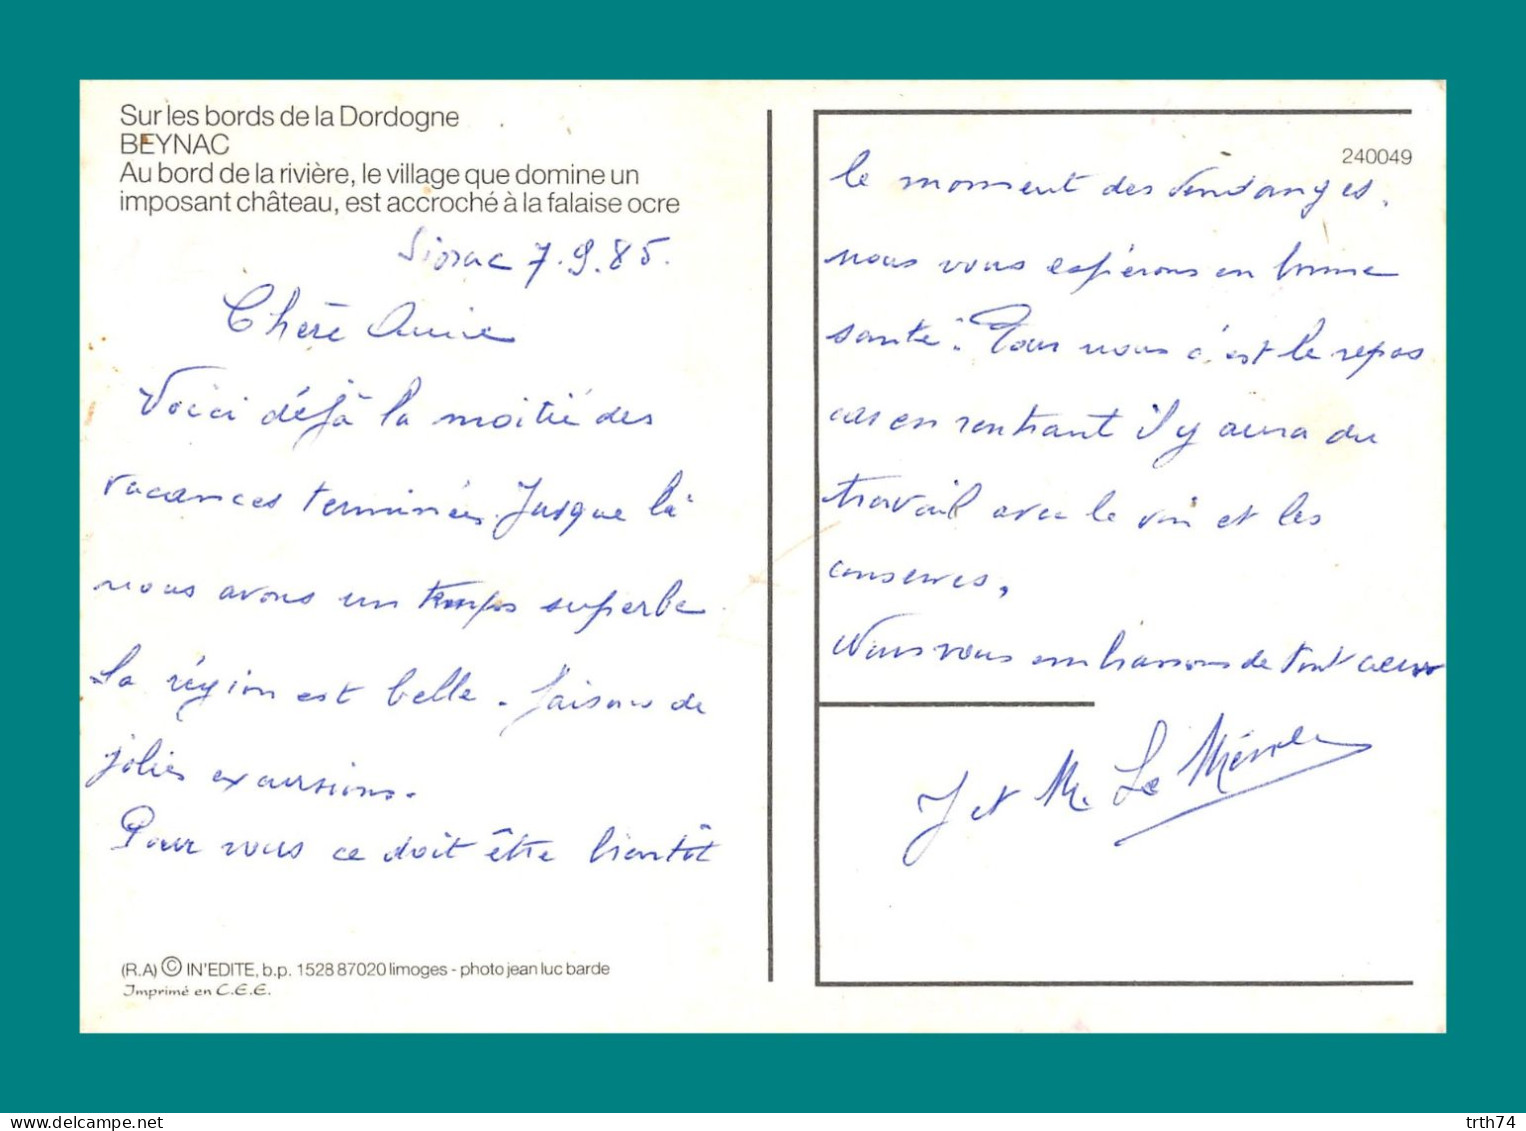 Sur les bords de la Dordogne
BEYNAC
Au bord de la rivière, le village que domine un
imposant château, est accroché à la falaise ocre
Siorac 7.9.85.
Chère Amie
Voici déjà la moitié des
vacances terminées. Jusque là
nous avons un temps superbe
La région est belle. Faisons de
jolies excursions.
Pour vous ce doit être bientôt
(R.A) © IN'EDITE, b.p. 1528 87020 limoges - photo jean luc barde
Imprimé en C.E.E.
240049
le moment des Vendanges.
nous vous espérons en bonne
santé. Pour nous c'est le repos
car en rentrant il y aura du
travail avec le vin et les
conserves.
Nous vous embrassons de tout coeur
J et M. Le
delcampe.net
trth74